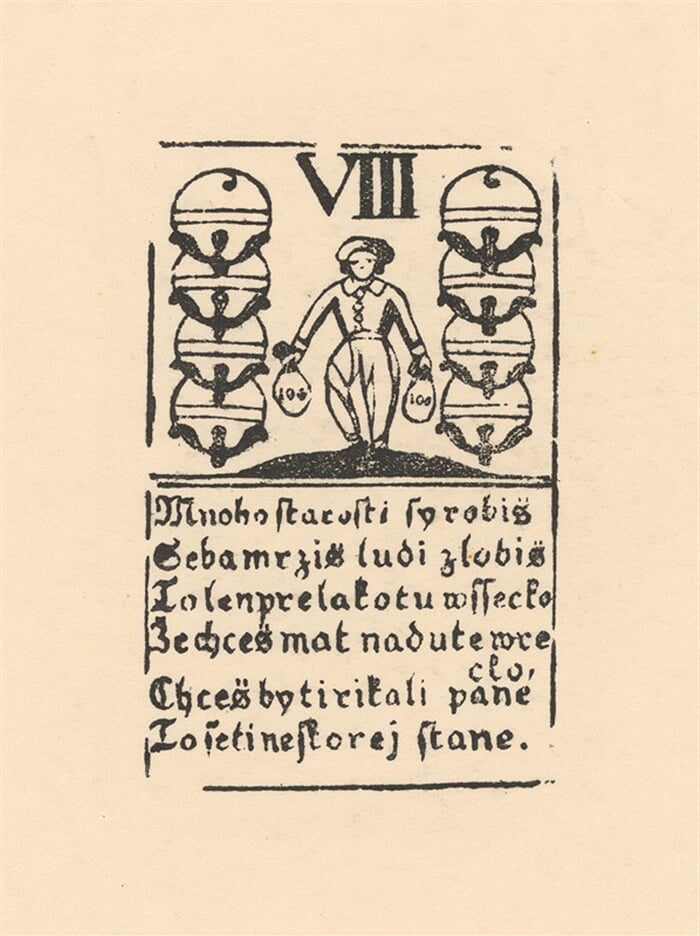 VIII
106 100
Mnoho starosti sy robiš
Seba mrziš ludi zlobiš
To len pre lakotu wssecko
Že chceš mat nadute wre
cko,
Chceš by ti rikali pane
To še ti neskorej stane.